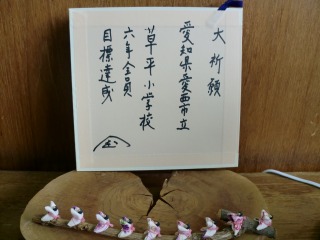 大祈願
愛知県愛西市立
草平小学校
六年全員
目標達成